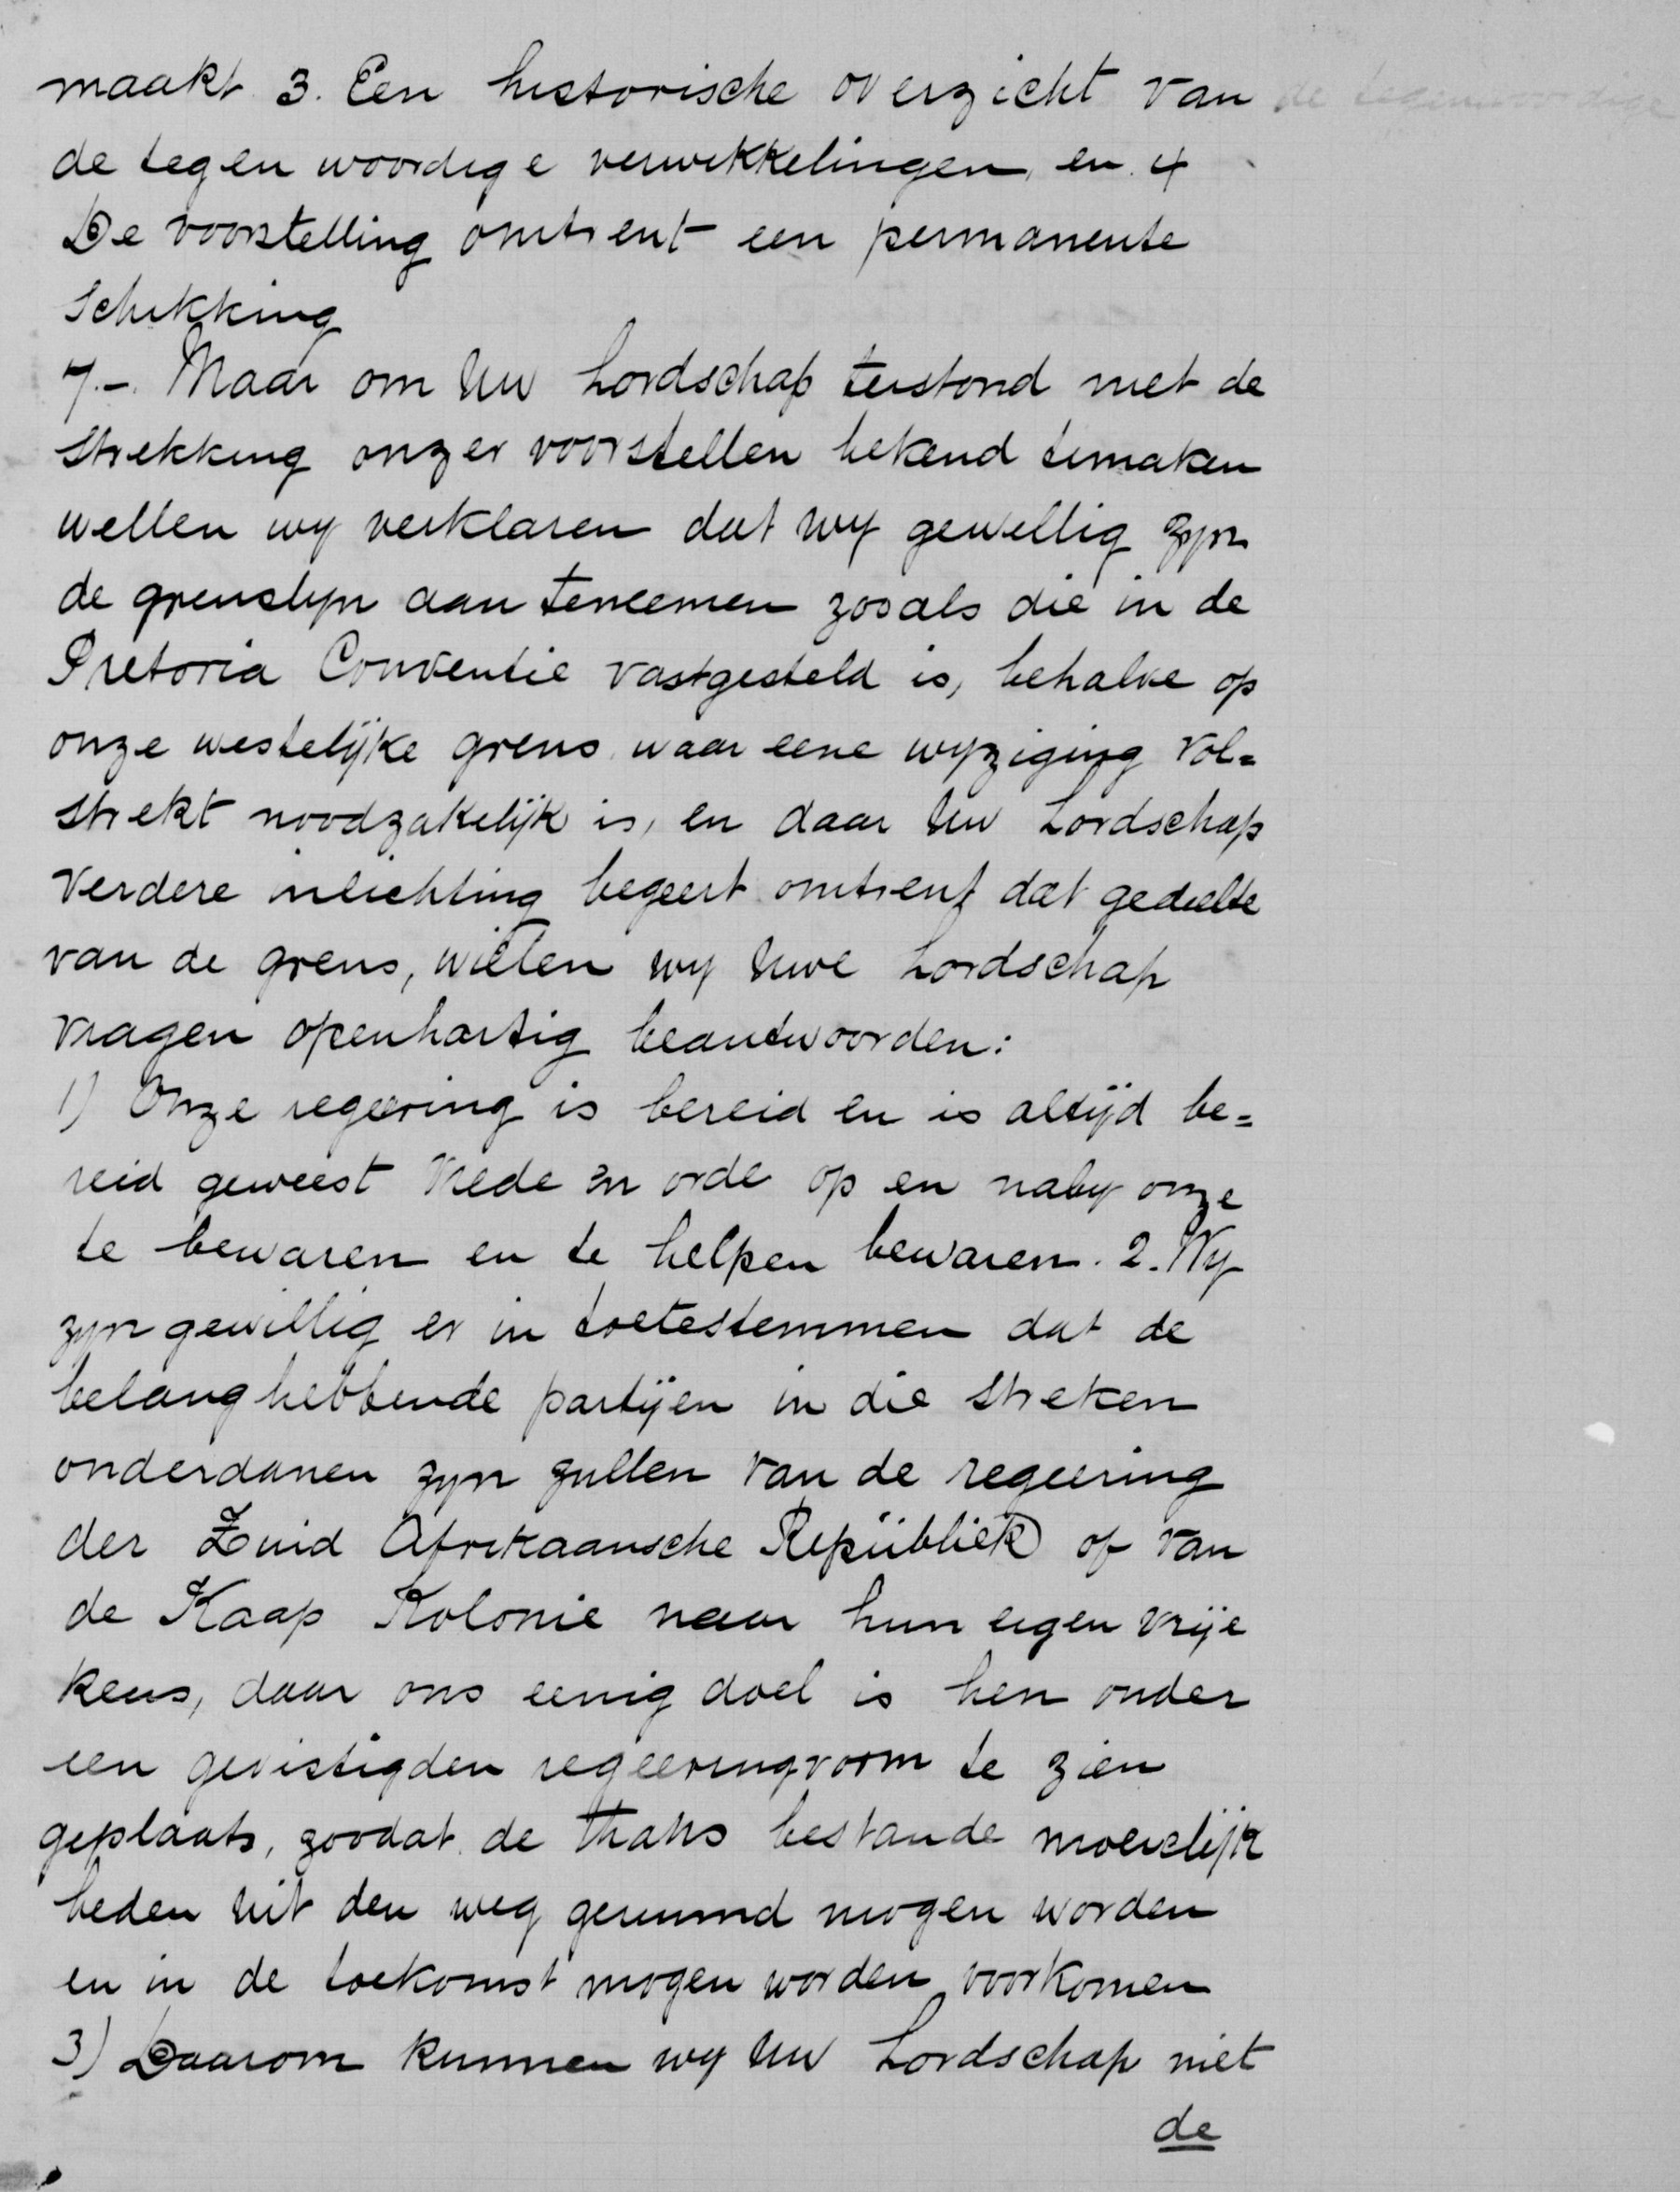 maakt 3. Een historische overzicht van
de tegen woordige verwikkelingen, en. 4
De voorstelling omtrent een permanente
Schikking
7.-. Maar om Uw Lordschap terstond met de
strekking onzer voorstellen bekend temaken
willen wy verklaren dat wy gewillig zyn
de grenslyn aan teneemen zooals die in de
Pretoria Conventie vastgesteld is, behalve op
onze westelijke grens waar eene wyziging vol=
strekt noodzakelijk is, en daar Uw Lordschap
verdere inlichting begeert omtrent dat gedeelte
van de grens, willen wy Uwe Lordschap
vragen openhartig beantwoorden:
1) Onze regeering is bereid en is altijd be=
reid geweest vrede en orde op en naby onze
te bewaren en te helpen bewaren. 2. Wy
zyn gewillig er in toetestemmen dat de
belanghebbende partijen in die streken
onderdanen zyn zullen van de regeering
der Zuid Afrikaansche Republiek of van
de Kaap Kolonie naar hun eigen vrije
keus, daar ons eenig doel is hen onder
een gevistigden regeeringvorm te zien
geplaats, zoodat de thans bestande moeielijk
heden uit den weg geruimd mogen worden
en in de toekomst mogen worden voorkomen
3) Daarom kunnen wy Uw Lordschap niet
de